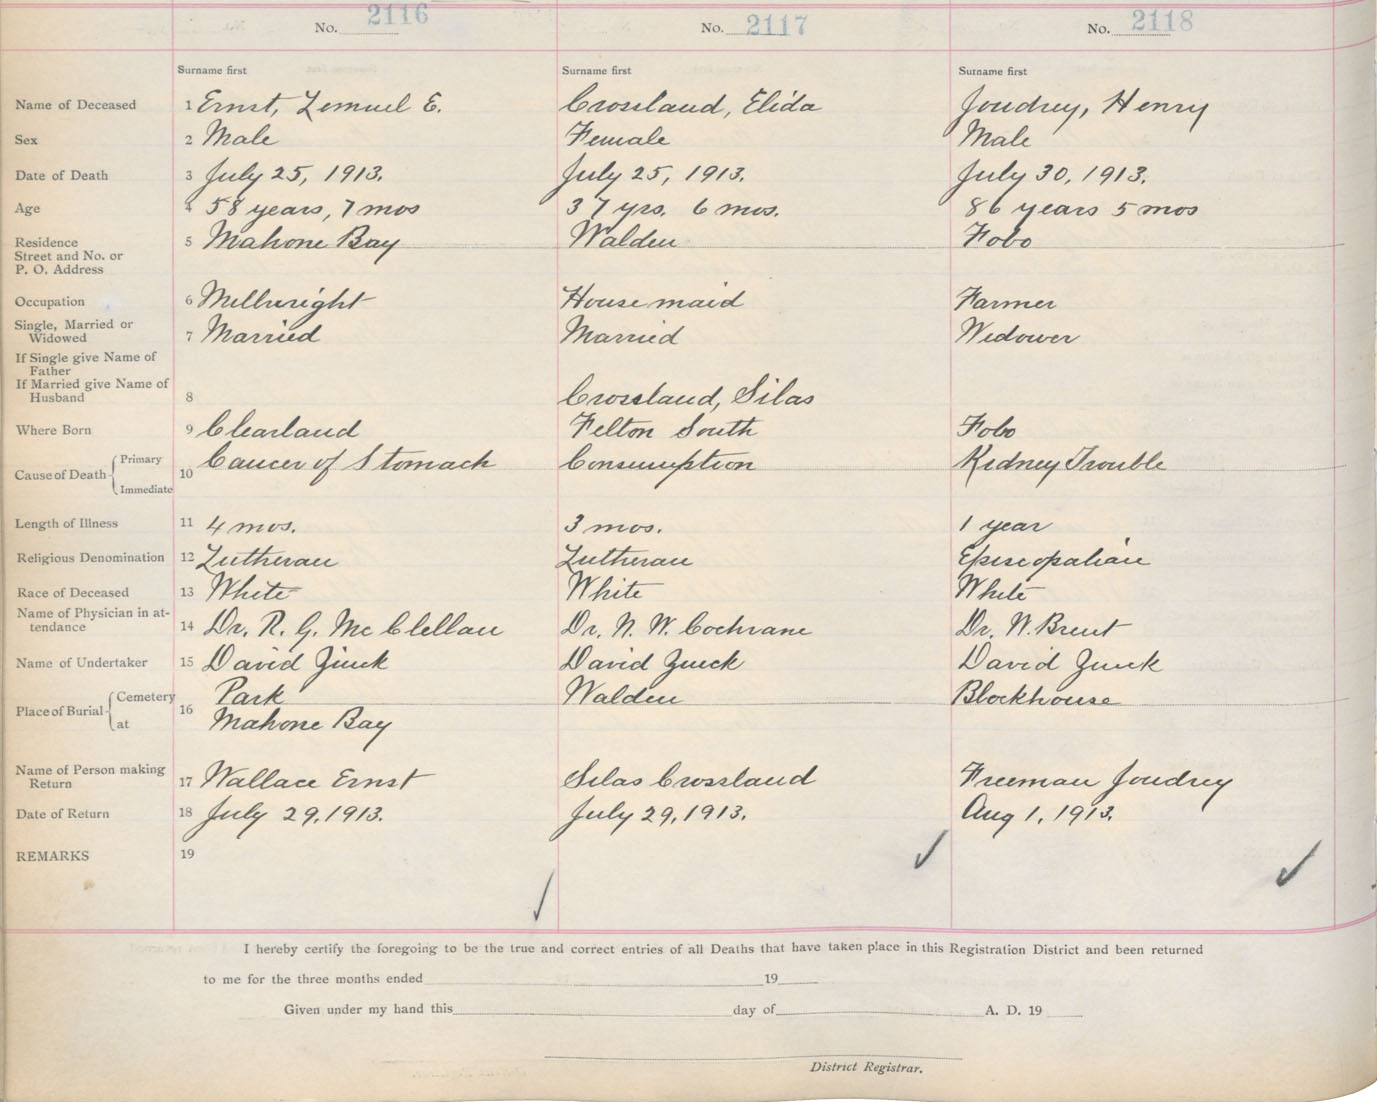 No. 2116 No. 2117 No. 2118
Surname first Surname first Surname first
Name of Deceased 1 Ernst, Lemuel E. Crossland, Elida Joudrey, Henry
Sex 2 Male Female Male
Date of Death 3 July 25, 1913. July 25, 1913. July 30, 1913.
Age 4 58 years, 7 mos 37 yrs. 6 mos. 86 years 5 mos
Residence 5 Mahone Bay Walden Fobo
Street and No. or
P. O. Address
Occupation 6 Millwright House maid Farmer
Single, Married or
Widowed 7 Married Married Widower
If Single give Name of
Father
If Married give Name of
Husband 8 Crossland, Silas
Where Born 9 Clearland Felton South Fobo
Cause of Death Primary 10 Cancer of Stomach Consumption Kidney Trouble
Immediate
Length of Illness 11 4 mos. 3 mos. 1 year
Religious Denomination 12 Lutheran Lutheran Episcopalian
Race of Deceased 13 White White White
Name of Physician in at-
tendance 14 Dr. R. G. McClellan Dr. N. W. Cochrane Dr. W. Brent
Name of Undertaker 15 David Zinck David Zinck David Zinck
Place of Burial Cemetery 16 Park Walden Blockhouse
at Mahone Bay
Name of Person making
Return 17 Wallace Ernst Silas Crossland Freeman Joudrey
Date of Return 18 July 29, 1913. July 29, 1913. Aug 1, 1913.
REMARKS 19
I hereby certify the foregoing to be the true and correct entries of all Deaths that have taken place in this Registration District and been returned
to me for the three months ended 19
Given under my hand this day of A. D. 19
District Registrar.